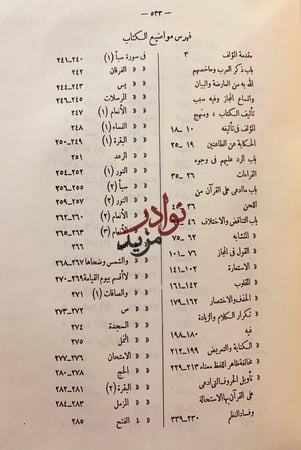 — ٥٣٣ —
فهرس مواضيع الكتاب
مقدمة المؤلف ٣
باب ذكر العرب وما خصهم
الله به من العارضة والبيان
واتساع المجاز وفيه سبب
تأليف الكتاب ، ومنهج
المؤلف فى تأليفه ١٠ــ١٨
الحكاية عن الطاعنين ١٩ــ٢٥
باب الرد عليهم فى وجوه
القراءات ٢٦ــ٣٥
باب ما ادعى على القرآن من
اللحن ٣٦
باب التناقض والاختلاف ٤٦
المتشابه ٦٢ــ٧٥
القول فى المجاز ٧٦ــ١٠١
الاستعارة ١٠٢ــ١٤١
المقلوب ١٤٢ــ١٦١
الحذف والاختصار ١٦٢ــ١٧٩
تكرار الكلام والزيادة
فيه ١٨٠ــ١٩٨
الكناية والتعريض ١٩٩ــ٢١٢
مخالفة ظاهر اللفظ معناه ٢١٣ــ٢٢٩
تأويل الحروف التى ادعى
على القرآن بها الاستحالة
وفساد النظم ٢٣٠ــ٢٣٩
فى سورة سبأ (١) ٢٤٠ــ٢٤١
» » الفرقان ٢٤٢
» » يس ٢٤٣ــ٢٤٤
» » المرسلات ٢٤٥ــ٢٤٦
» » الأنعام (١) ٢٤٧
» » النساء (١) ٢٤٨
» » البقرة (١) ٢٤٩ــ٢٥٠
» » الرعد ٢٥١
» » النور (١) ٢٥٢ــ٢٥٤
» » سبأ (٢) ٢٥٥ــ٢٥٦
» » النور (٢) ٢٥٧ــ٢٥٩
» » الأنعام (٢) ٢٦٠ــ٢٦٢
» » الأنعام (٣) ٢٦٣ــ٢٦٥
٢٦٦
» » والشمس وضحاها ٢٦٧ــ٢٦٨
» » لا أقسم بيوم القيامة ٢٦٩ــ٢٧٠
» » والصافات (١) ٢٧١
» » ص ٢٧٢ــ٢٧٣
» » السجدة ٢٧٤
» » النمل ٢٧٥
» » الامتحان ٢٧٦ــ٢٧٧
» » الحج ٢٧٨ــ٢٨٠
» » البقرة (٢) ٢٨١ــ٢٨٢
» » المزمل ٢٨٣ــ٢٨٤
» » الفتح ٢٨٥
نوادر
مزيد